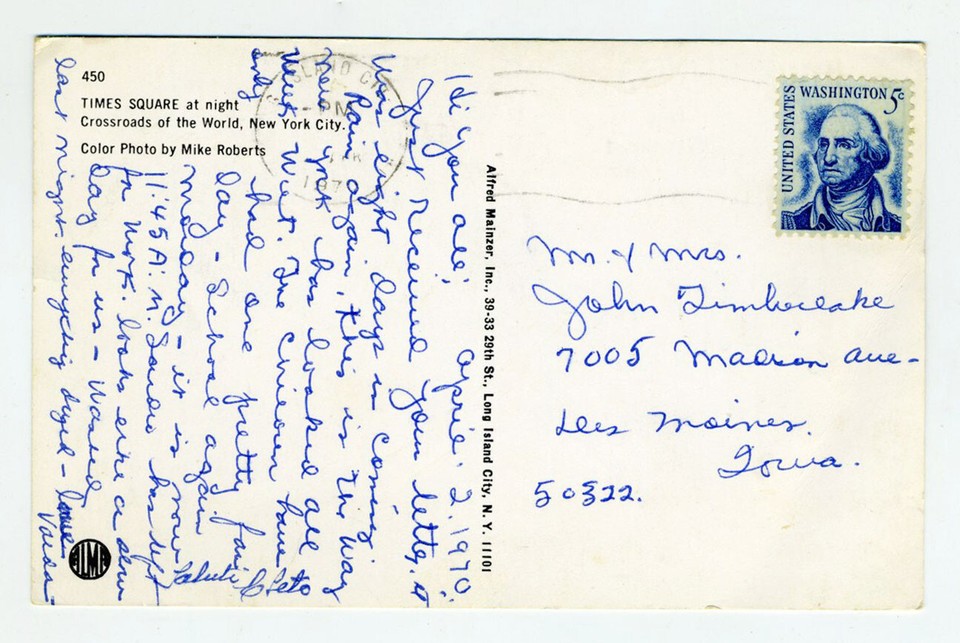 450
TIMES SQUARE at night
Crossroads of the World, New York City.
Color Photo by Mike Roberts
Hi you all: April. 2. 1970.
Just received your letter, it
was eight days in coming
Rain again, this is the way
New York has looked all
week. The children have
only had one pretty fair
day - School again
Monday - it is now
11:45 A.M. has left
for work. looks like a slow
day for us - Washed
last night. everything dryed - love
Vanda
Saluti Cleto
Alfred Mainzer, Inc., 39-33 29th St., Long Island City, N. Y. 11101
ISLAND CITY
PM
UNITED STATES
WASHINGTON 5c
Mr. & Mrs.
John Timberlake
7005 Madison Ave -
Des Moines.
Iowa.
50322.